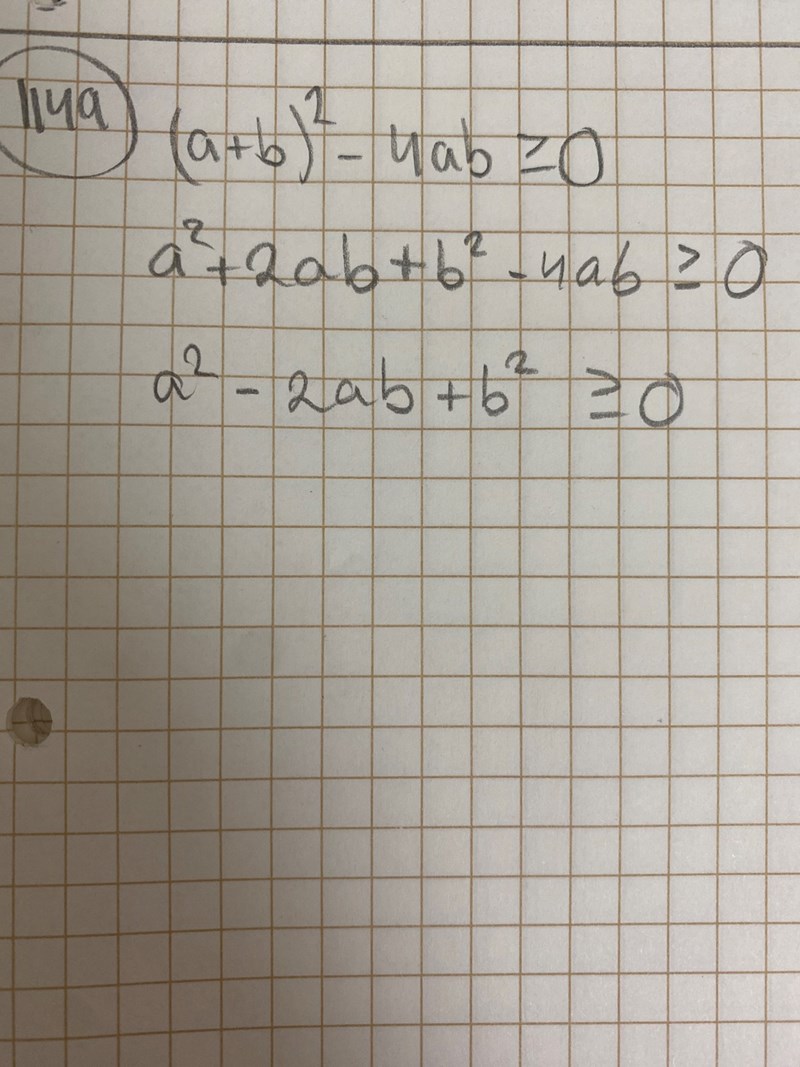 1149 (a+b)² - 4ab ≥ 0
a² + 2ab + b² - 4ab ≥ 0
a² - 2ab + b² ≥ 0